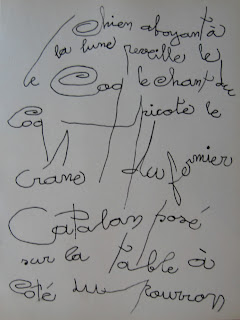 chien aboyant à
la lune reveille le
le Coq le chant du
Coq picote le
Crane du fermier
Catalan posé
sur la table à
Coté du Pourron